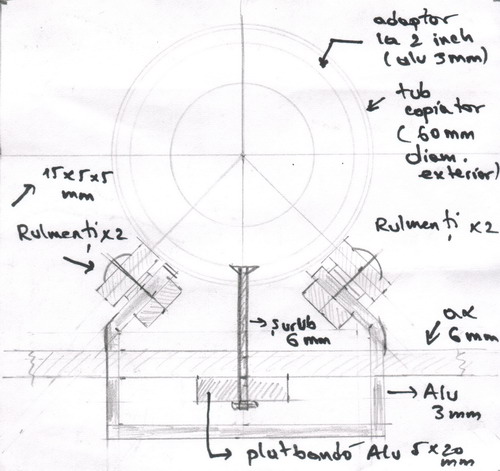 adaptor
la 2 inch
(alu 3mm)
tub
copiator
( 60mm
diam.
exterior)
15x5x5
mm
Rulmenți x2
Rulmenți x2
șurub
6 mm
ax
6mm
Alu
3mm
platbandă Alu 5x20
mm